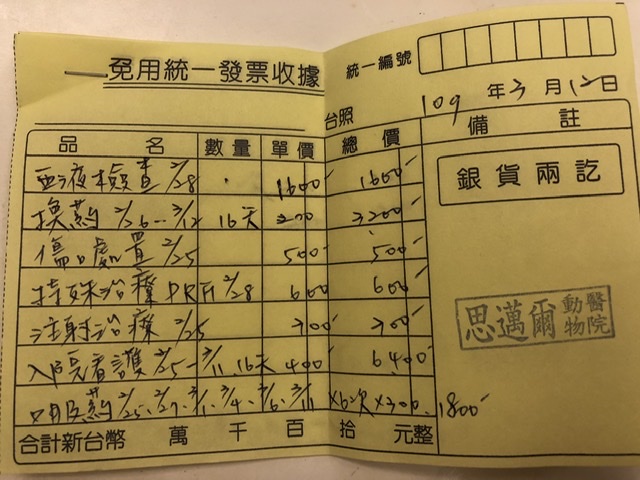 免用統一發票收據
統一編號
台照
109年3月12日
品名 數量 單價 總價 備註
血液檢查 2/28 1600 1600
銀貨兩訖
換藥 2/26-3/12 16天 200 3200
傷口處置 2/25 500 500
特殊治療 PRF 2/28 600 600
注射治療 2/25 200 200
思邁爾動物醫院
入院看護 2/25-3/11 16天 400 6400
口服藥 2/25、2/27、3/1、3/4、3/6、3/11 ×6次×300 1800
合計新台幣 萬 千 百 拾 元整